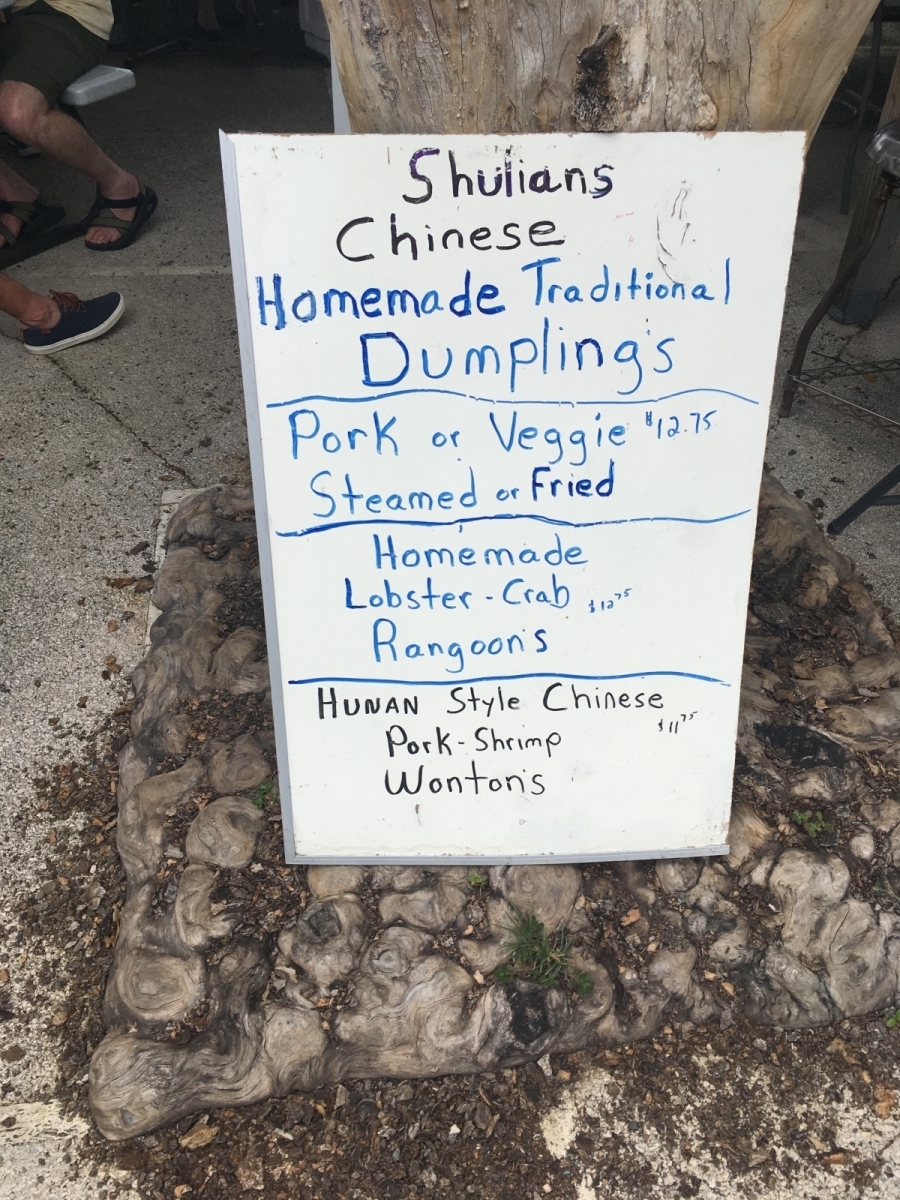 Shulians
Chinese
Homemade Traditional
Dumpling's
Pork or Veggie $12.75
Steamed or Fried
Homemade
Lobster - Crab $12.75
Rangoon's
HUNAN Style Chinese
Pork - Shrimp $11.75
Wonton's